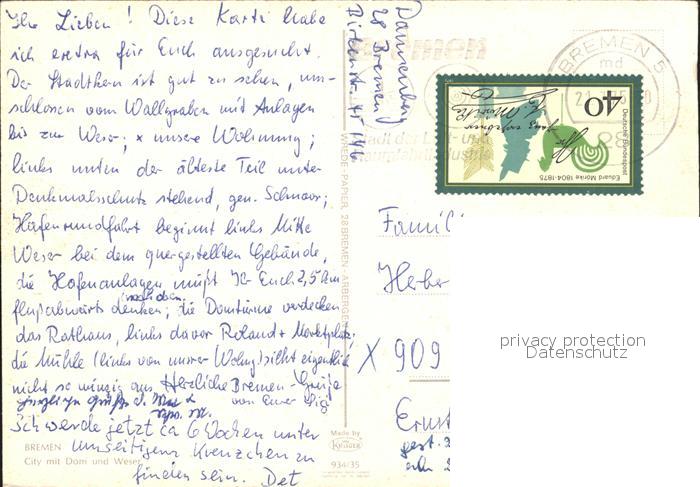 Ihr Lieben! Diese Karte habe
ich extra für Euch ausgesucht.
Der Stadtkern ist gut zu sehen, um-
schlossen vom Wallgraben mit Anlagen
bis zur Weser; x unsere Wohnung;
links unten der älteste Teil unter
Denkmalsschutz stehend, gen. Schnoor;
Hafenrundfahrt beginnt links Mitte
Weser bei dem quergestellten Gebäude,
die Hafenanlagen müßt Ihr Euch 2,5 km
flußabwärts nach oben denken; die Domtürme verdecken
das Rathaus, links davor Roland + Marktplatz,
die Mühle (links von unsrer Wohng) sieht eigentlich
nicht so winzig aus. Herzliche Bremen-Grüße
von Eurer
Ich werde jetzt ca 6 Wochen unter
umseitigem Kreuzchen zu
finden sein. Det
BREMEN
City mit Dom und Weser
Dannenberg
28 Bremen
WREDE-PAPIER, 28 BREMEN
Made by
KRÜGER
934/35
BREMEN 5
md
28
40
Deutsche Bundespost
Eduard Mörike 1804-1875
Stadt der Luft- und
Raumfahrtindustrie
Famili
Herber
X 909
Ernst
privacy protection
Datenschutz